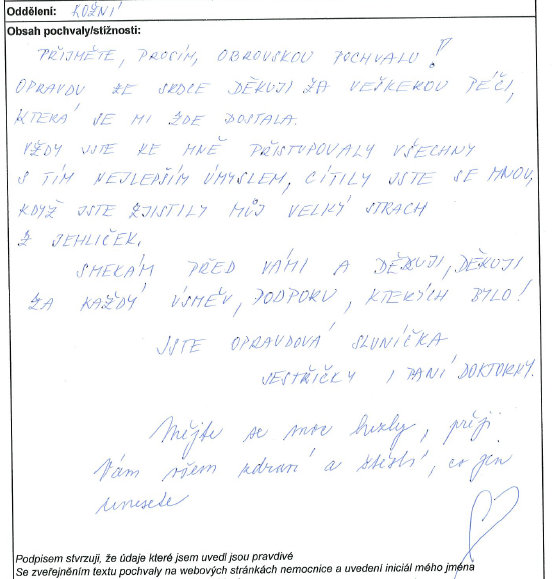 Oddělení: KOŽNÍ
Obsah pochvaly/stížnosti:
PŘIJMĚTE, PROSÍM, OBROVSKOU POCHVALU!
OPRAVDU ZE SRDCE DĚKUJI ZA VEŠKEROU PÉČI,
KTERÁ SE MI ZDE DOSTALA.
VŽDY JSTE KE MNĚ PŘISTUPOVALY VŠECHNY
S TÍM NEJLEPŠÍM ÚMYSLEM, CÍTILY JSTE SE MNOU,
KDYŽ JSTE ZJISTILY MŮJ VELKÝ STRACH
Z JEHLIČEK.
SMEKÁM PŘED VÁMI A DĚKUJI, DĚKUJI
ZA KAŽDÝ ÚSMĚV, PODPORU, KTERÝCH BYLO!
JSTE OPRAVDOVÁ SLUNÍČKA
SESTŘIČKY I PANÍ DOKTORKY.
Mějte se moc hezky, přeji
Vám všem zdraví a štěstí, co jen
unesete
Podpisem stvrzuji, že údaje které jsem uvedl jsou pravdivé
Se zveřejněním textu pochvaly na webových stránkách nemocnice a uvedení iniciál mého jména